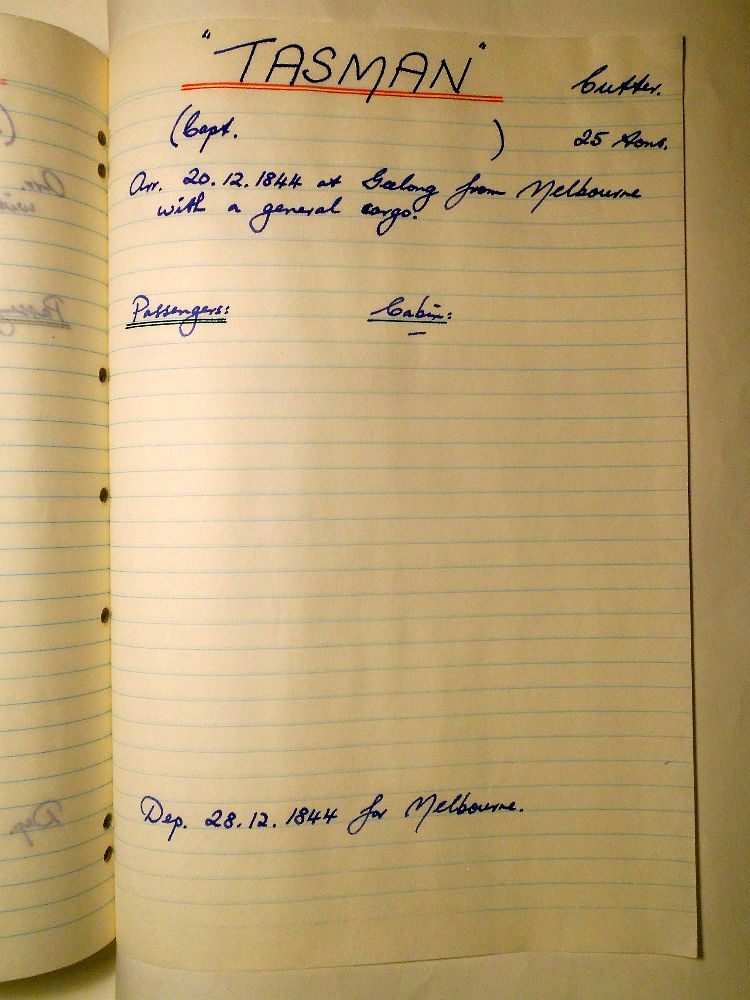 "TASMAN" Cutter.
(Capt. ) 25 tons.
Arr. 20.12.1844 at Geelong from Melbourne
with a general cargo.
Passengers: Cabin:
—
Dep. 28.12.1844 for Melbourne.